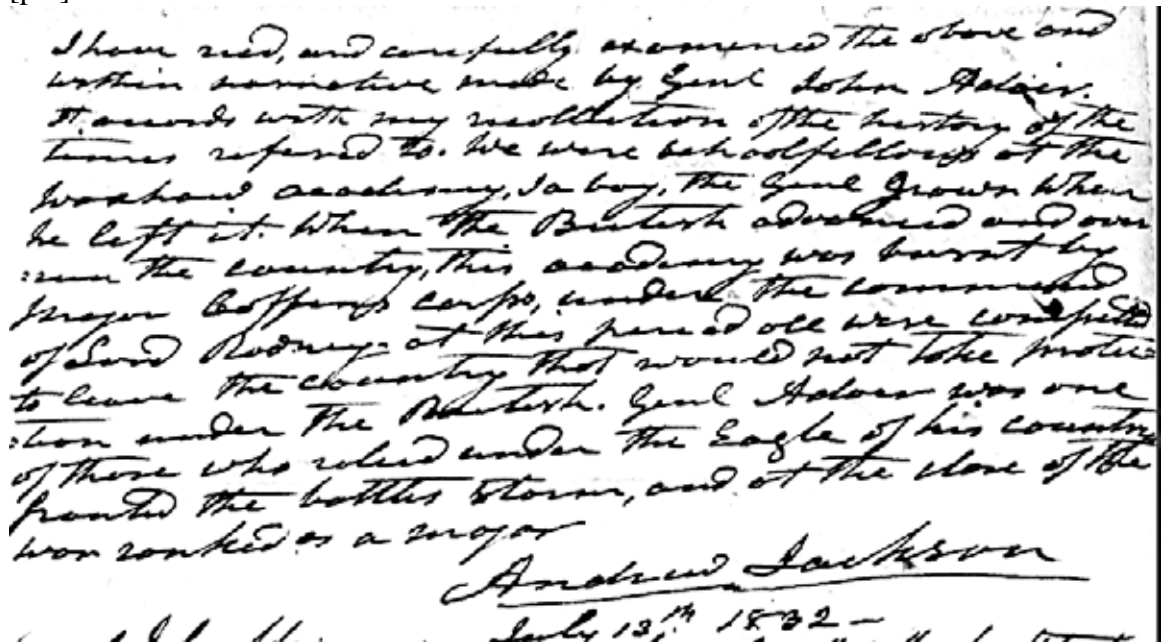 I have read, and carefully examined the above and
within narrative made by Genl John Adair.
It accords with my recollection of the history of the
times refered to. We were schoolfellows at the
Waxhaw academy, I a boy, the Genl grown when
he left it. When the British advanced and over
=run the country, this academy was burnt by
Major Coffins corps, under the command
of Lord Rodney- at this period all were compelled
to leave the country that would not take protec=
=tion under the British. Genl Adair was one
of those who relied under the Eagle of his country
fronted the battles storm, and at the close of the
war ranked as a major
Andrew Jackson
July 13th 1832-